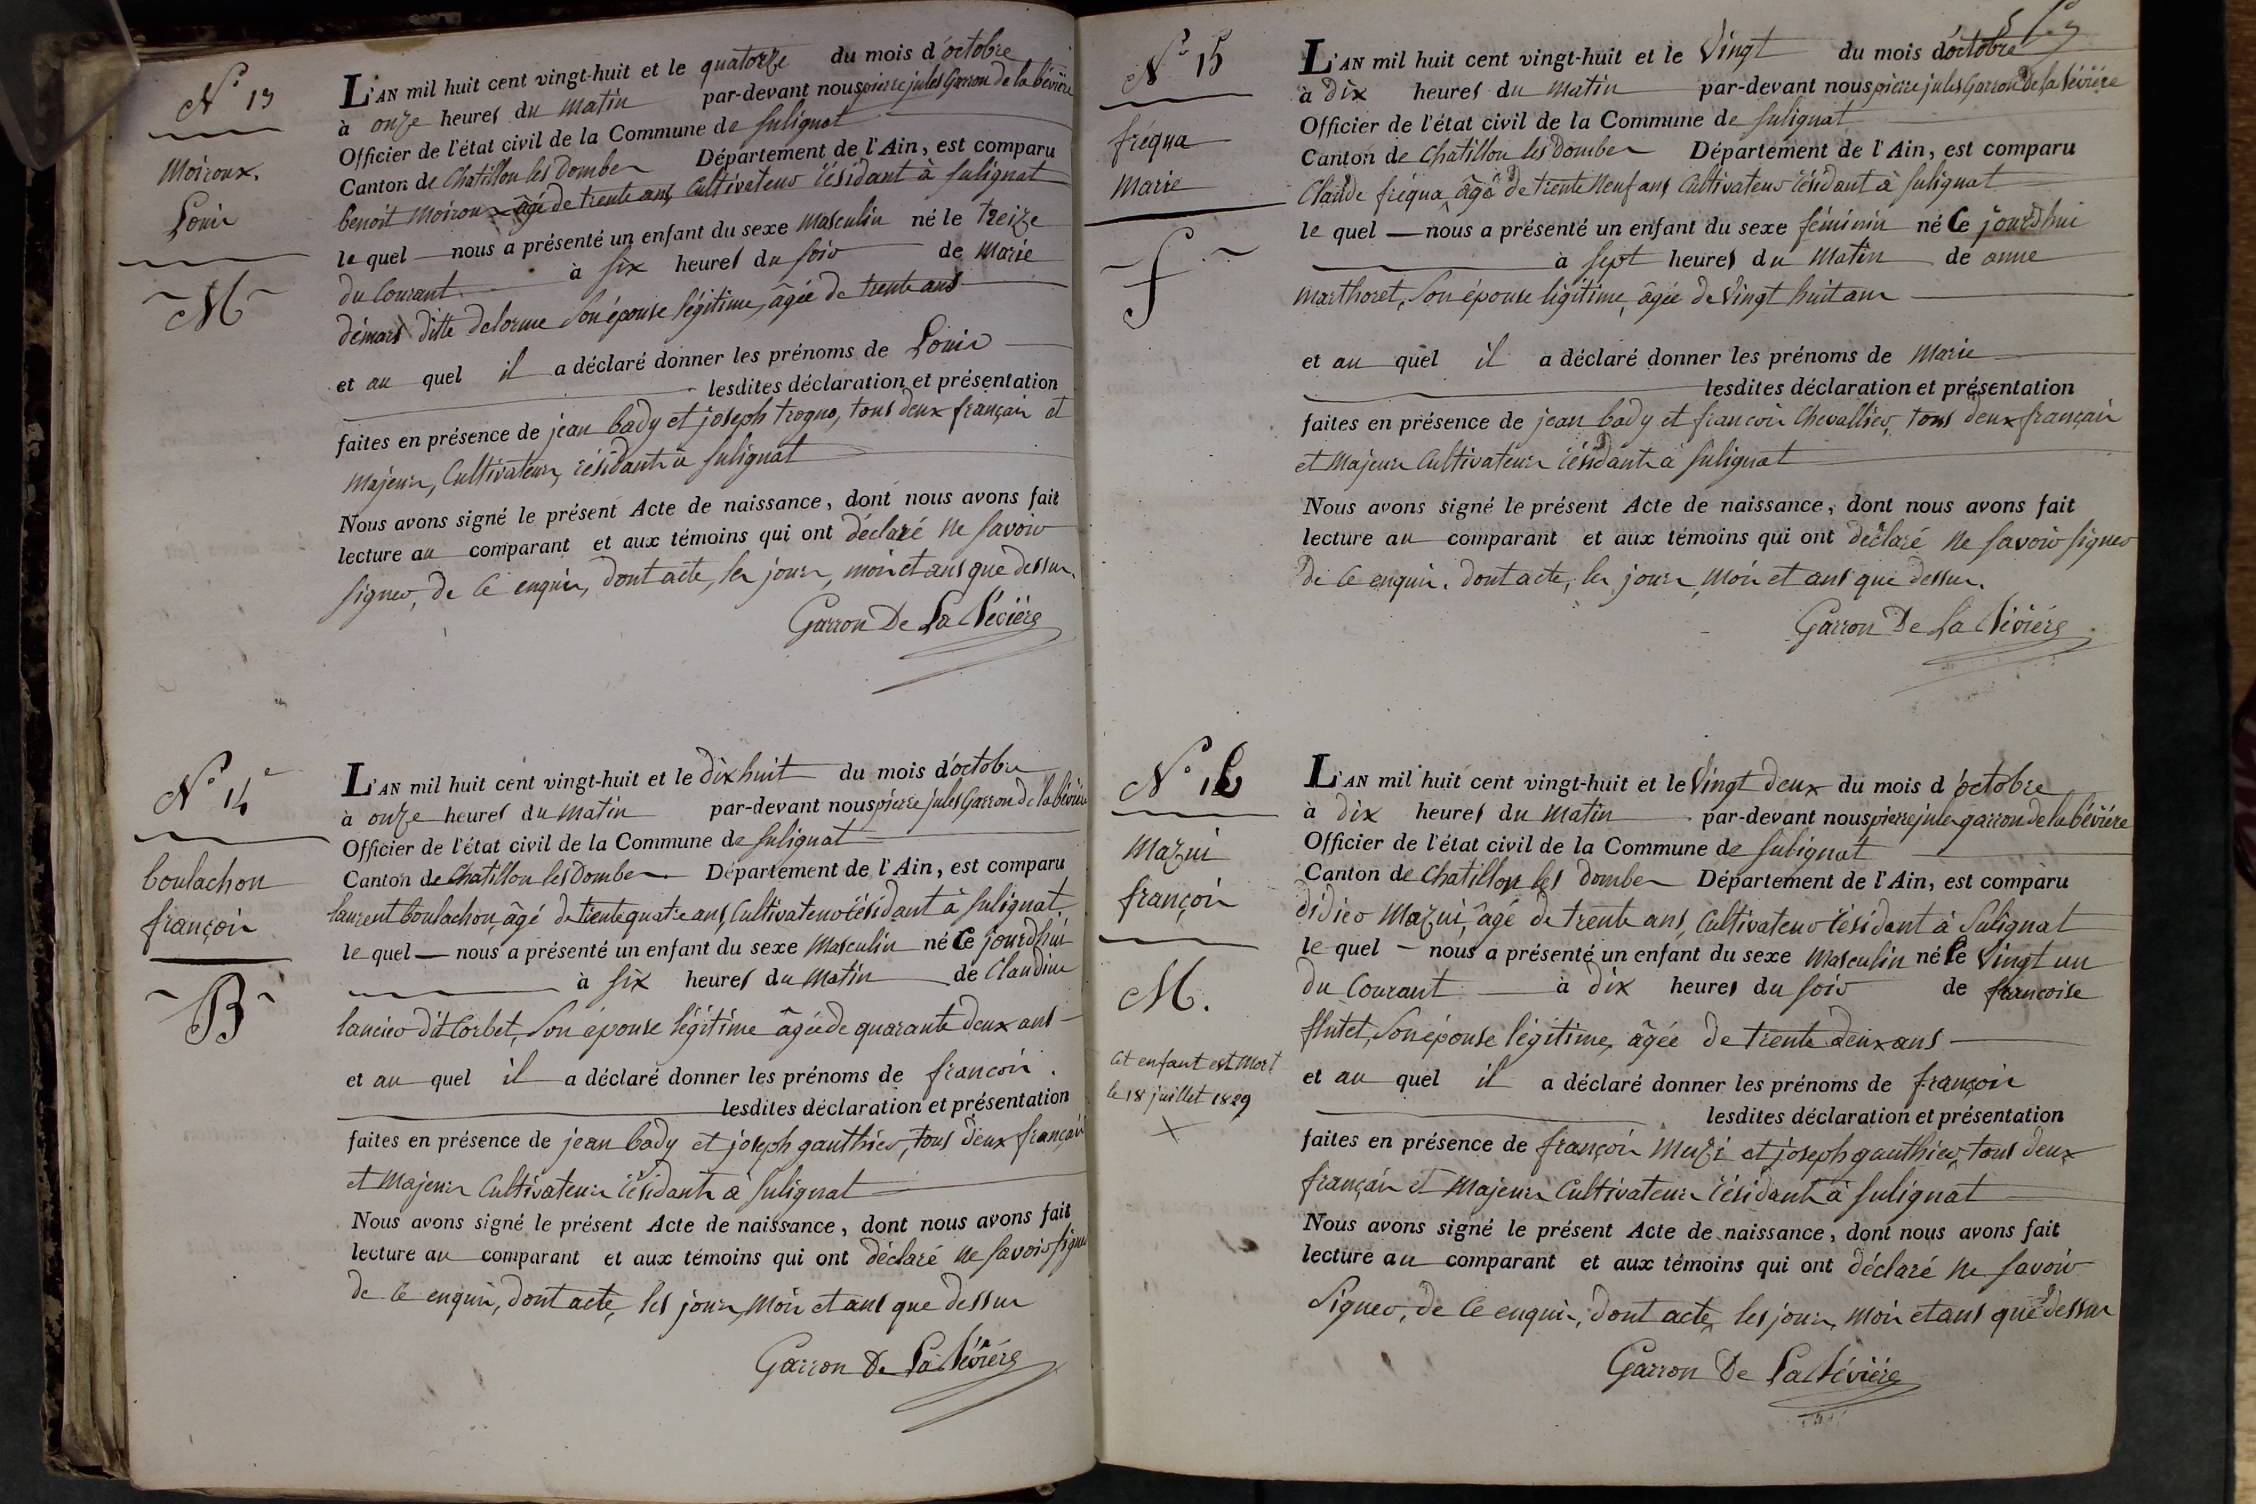 N° 13
Moiroux.
Louis
M
L'AN mil huit cent vingt-huit et le quatorze du mois d'octobre
à onze heures du matin par-devant nous pierre jules Garron de la bévière
Officier de l'état civil de la Commune de Sulignat
Canton de Chatillon les Dombes Département de l'Ain, est comparu
benoit Moiroux âgé de trente ans, Cultivateur résidant à Sulignat
le quel nous a présenté un enfant du sexe Masculin né le treize
du Courant à six heures du soir de Marie
démars ditte delorme Son épouse légitime, âgée de trente ans
et au quel il a déclaré donner les prénoms de Louis
lesdites déclaration et présentation
faites en présence de jean bady et joseph trogno, tous deux français et
Majeurs, Cultivateurs, résidants à Sulignat
Nous avons signé le présent Acte de naissance, dont nous avons fait
lecture au comparant et aux témoins qui ont déclaré ne savoir
signer, de ce enquis, dont acte, les jours, mois et ans que dessus.
Garron De La Bévière
N° 14
boulachon
françois
B
L'AN mil huit cent vingt-huit et le dix huit du mois d'octobre
à onze heures du Matin par-devant nous pierre jules Garron de la bévière
Officier de l'état civil de la Commune de Sulignat
Canton de Chatillon les Dombes Département de l'Ain, est comparu
laurent boulachon, âgé de trente quatre ans, Cultivateur résidant à Sulignat
le quel nous a présenté un enfant du sexe Masculin né Ce jourd'hui
à six heures du Matin de Claudine
lancier dit Corbet, Son épouse légitime âgée de quarante deux ans
et au quel il a déclaré donner les prénoms de françois.
lesdites déclaration et présentation
faites en présence de jean bady et joseph gauthier, tous deux français
et Majeurs Cultivateurs résidants à Sulignat
Nous avons signé le présent Acte de naissance, dont nous avons fait
lecture au comparant et aux témoins qui ont déclaré ne savoir signer
de ce enquis, dont acte, les jours, Mois et ans que dessus
Garron De La Bévière
N° 15
fréqua
Marie
f
L'AN mil huit cent vingt-huit et le Vingt du mois d'octobre
à dix heures du Matin par-devant nous pierre jules Garron De la bévière
Officier de l'état civil de la Commune de Sulignat
Canton de Chatillon les Dombes Département de l'Ain, est comparu
Claude fréqua, âgé de trente Neuf ans Cultivateur résidant à Sulignat
le quel nous a présenté un enfant du sexe féminin né Ce jourd'hui
à sept heures du Matin de anne
Marthoret, Son épouse légitime, âgée de Vingt huit ans
et au quel il a déclaré donner les prénoms de Marie
lesdites déclaration et présentation
faites en présence de jean bady et francois Chevallier, tous deux français
et Majeurs Cultivateurs résidants à Sulignat
Nous avons signé le présent Acte de naissance, dont nous avons fait
lecture au comparant et aux témoins qui ont déclaré ne savoir signer
de ce enquis. dont acte, les jours, Mois et ans que dessus.
Garron De La Bévière
N° 16
Mazui
françois
M.
Cet enfant est Mort
le 18 juillet 1829
L'AN mil huit cent vingt-huit et le Vingt deux du mois d'octobre
à dix heures du Matin par-devant nous pierre jules garron de la bévière
Officier de l'état civil de la Commune de Sulignat
Canton de Chatillon les Dombes Département de l'Ain, est comparu
didier Mazui, âgé de trente ans, Cultivateur résidant à Sulignat
le quel nous a présenté un enfant du sexe Masculin né le Vingt un
du Courant à dix heures du soir de francoise
flutet, Son épouse légitime, âgée de trente deux ans
et au quel il a déclaré donner les prénoms de françois
lesdites déclaration et présentation
faites en présence de françois Muzi et joseph gauthier, tous deux
français et Majeurs Cultivateurs résidants à Sulignat
Nous avons signé le présent Acte de naissance, dont nous avons fait
lecture au comparant et aux témoins qui ont déclaré ne savoir
Signer, de ce enquis, dont acte, les jours, mois et ans que dessus
Garron De La Bévière